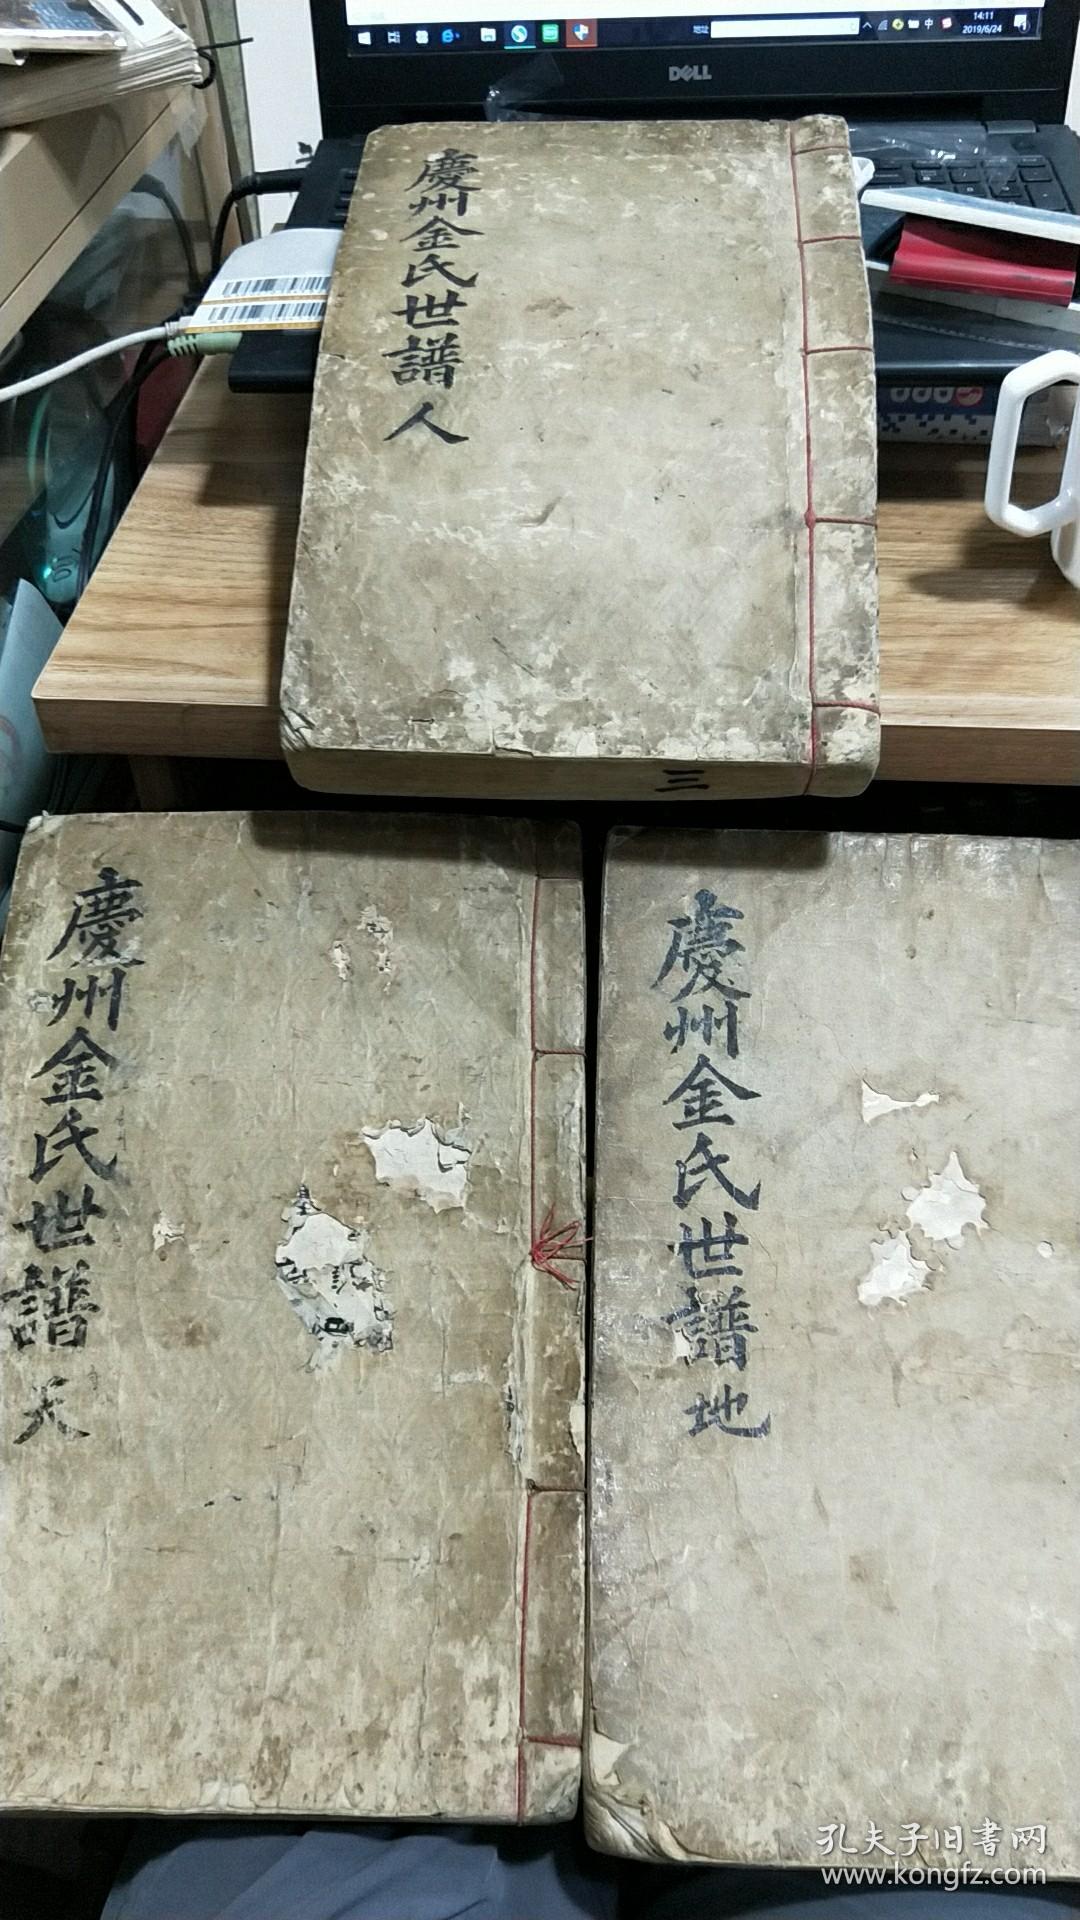 14:11
地址
中
2019/6/24
DELL
慶州金氏世譜 人
三
慶州金氏世譜 天
慶州金氏世譜 地
孔夫子旧書网
www.kongfz.com